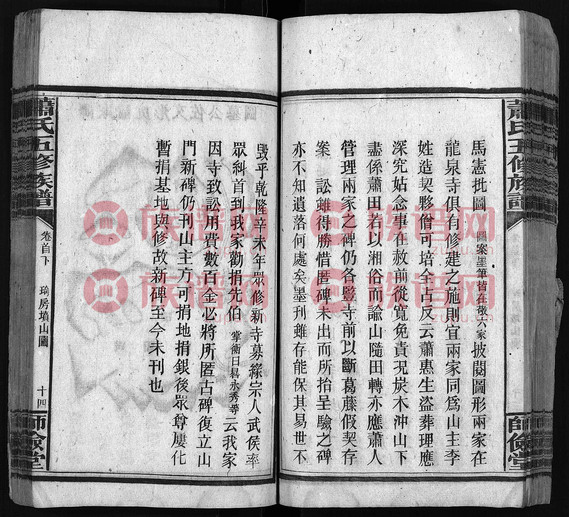 蕭氏五修族譜
馬憲批圖 圖案墨筆皆在敬六家 披閱圖形兩家在
龍泉寺俱有修建之施則宜兩家同爲山主李
姓造契夥僧可培全占反云蕭惠生盜葬理應
深究姑念事在赦前從寬免責現炭木沖山下
盡係蕭田若以湘俗而諭山隨田轉亦應蕭人
管理兩家之碑仍各豎寺前以斷葛藤假契存
案 訟雖得勝惜匿碑未出而所抬呈驗之碑
亦不知遺落何處矣墨刋雖存能保其易世不
師儉堂
毀乎乾隆辛未年眾修新寺募緣宗人武侯率
眾糾首到我家勸捐光伯 掌衡日暴永秀等 云我家
因寺致訟用費數百金必將所匿古碑復立山
門新碑仍刊山主方可捐地捐銀後眾尊屢化
暫捐基地與修故新碑至今未刊也
蕭氏五修族譜
卷首下
琦房墳山圖
十四
師儉堂
族谱网
族谱网
族谱网
族谱网